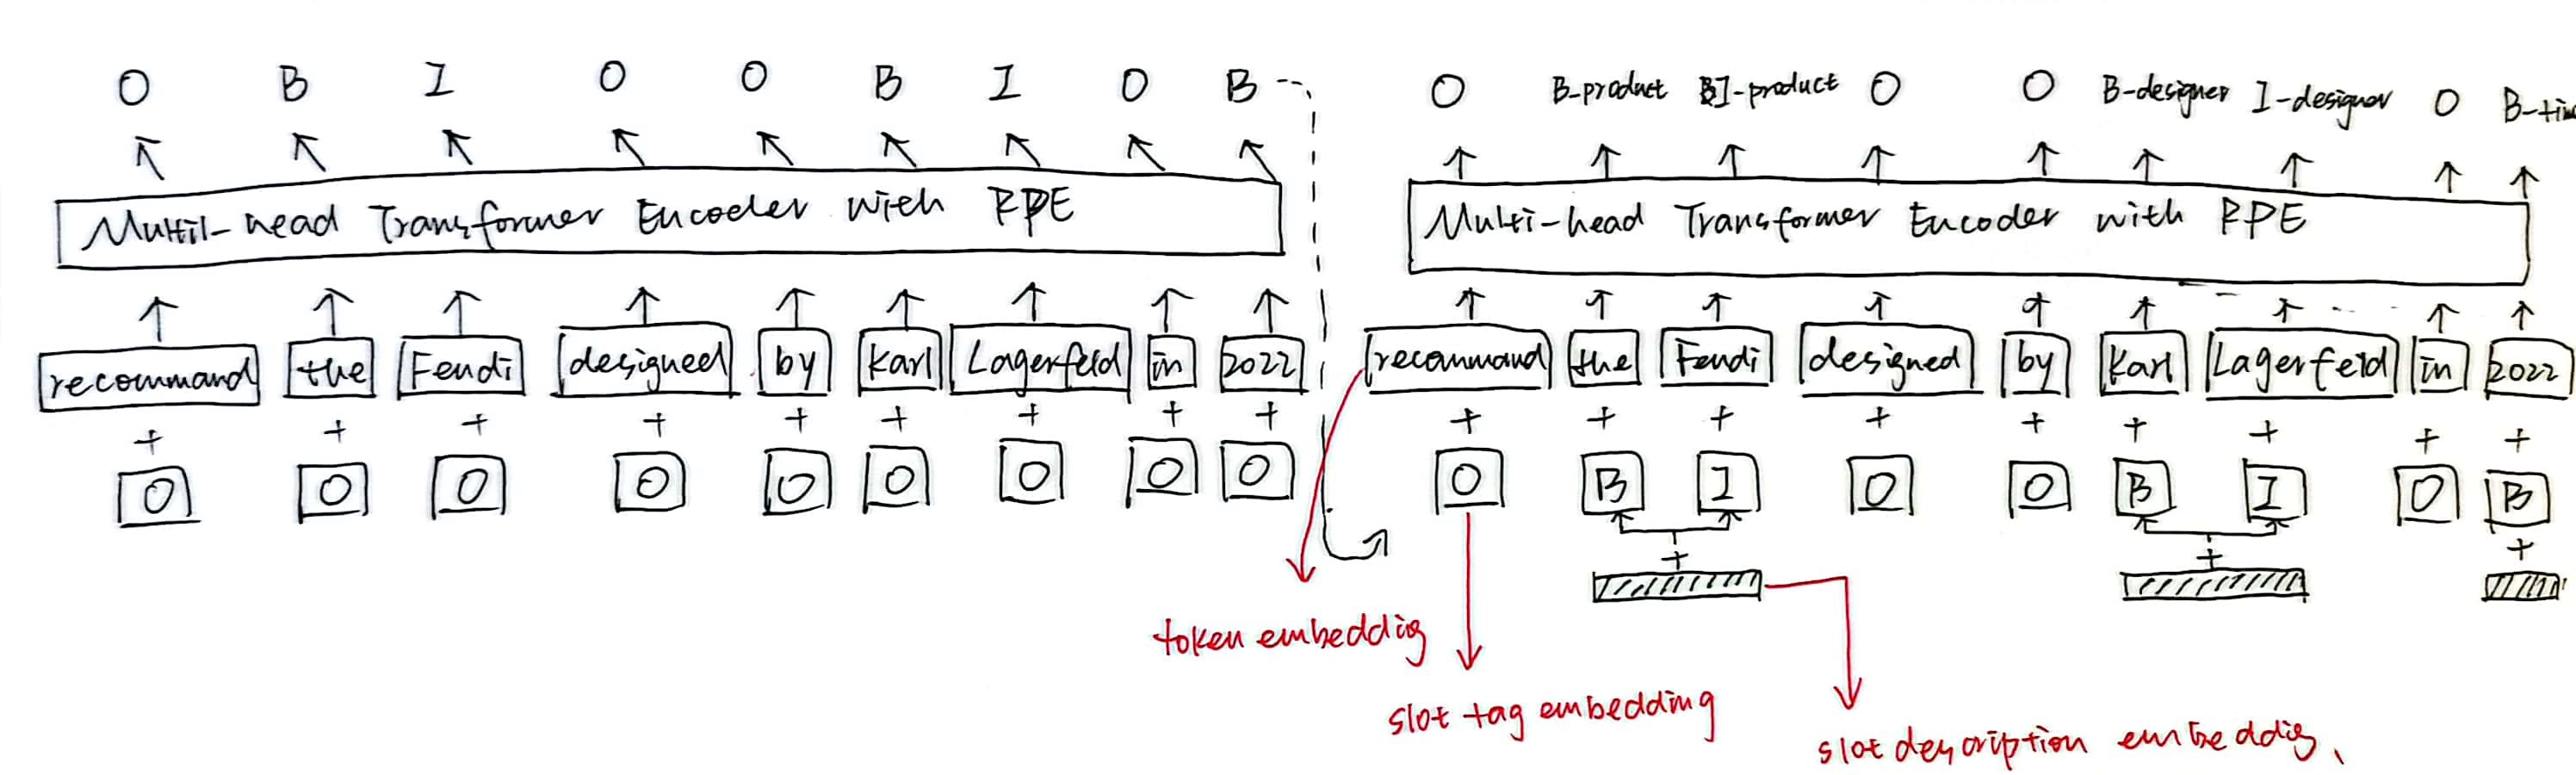 O B I O O B I O B
Multil-head Transformer Encoder with RPE
recommand the Fendi designed by Karl Lagerfeld in 2022
+ + + + + + + + +
O O O O O O O O O
O B-product BI-product O O B-designer I-designer O B-tim
Multi-head Transformer Encoder with RPE
recommand the Fendi designed by Karl Lagerfeld in 2022
+ + + + + + + + +
O B I O O B I O B
+ + +
token embeddig
slot tag embedding
slot description embeddig